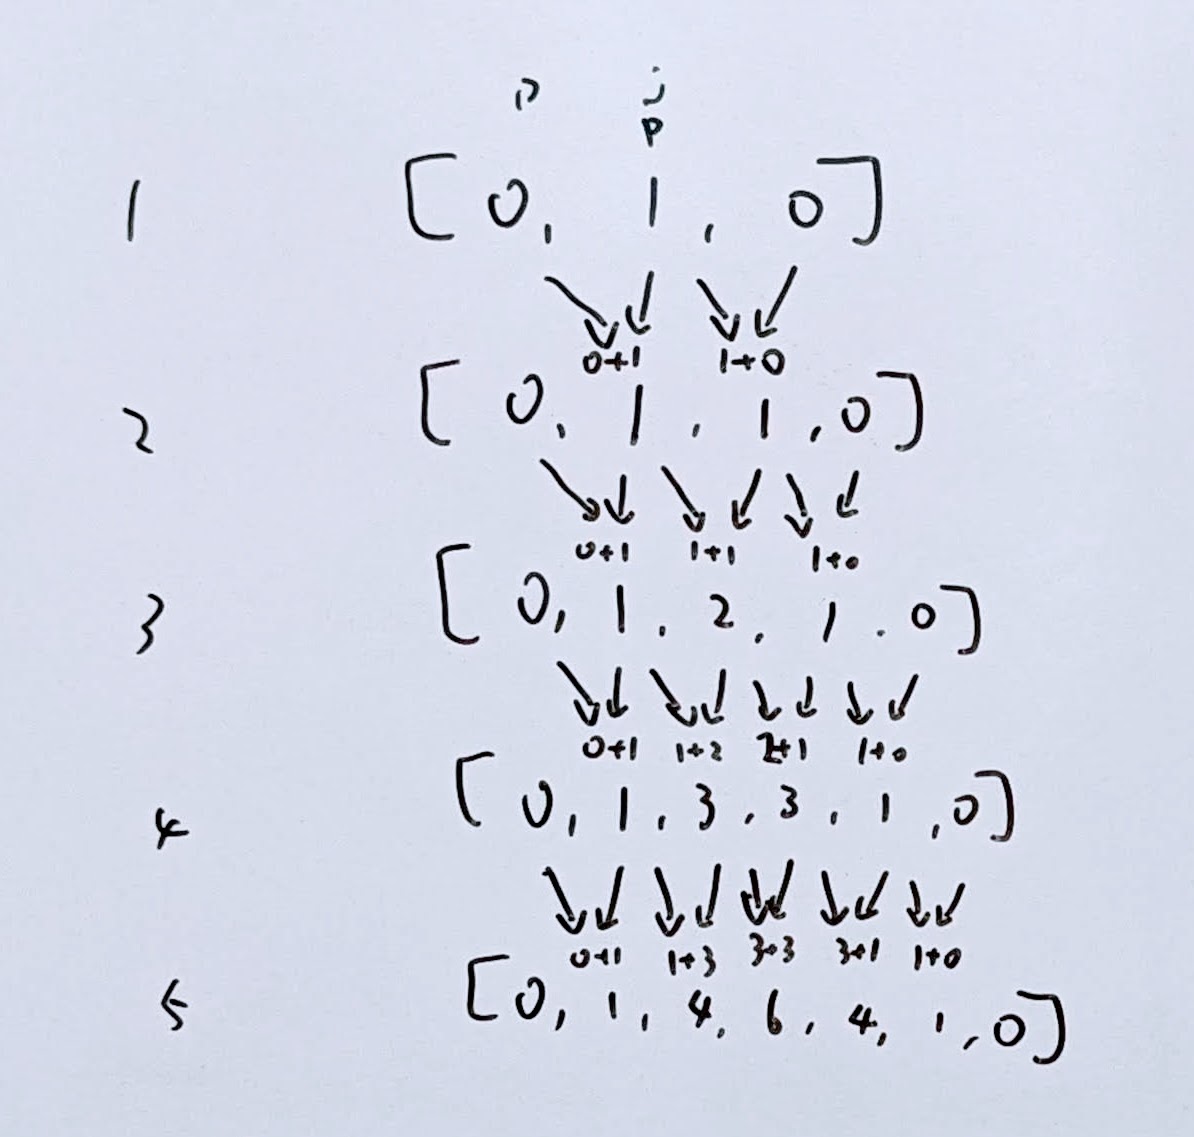 p j
p
1 [ 0, 1, 0 ]
0+1 1+0
2 [ 0, 1, 1, 0 ]
0+1 1+1 1+0
3 [ 0, 1, 2, 1, 0 ]
0+1 1+2 2+1 1+0
4 [ 0, 1, 3, 3, 1, 0 ]
0+1 1+3 3+3 3+1 1+0
5 [ 0, 1, 4, 6, 4, 1, 0 ]